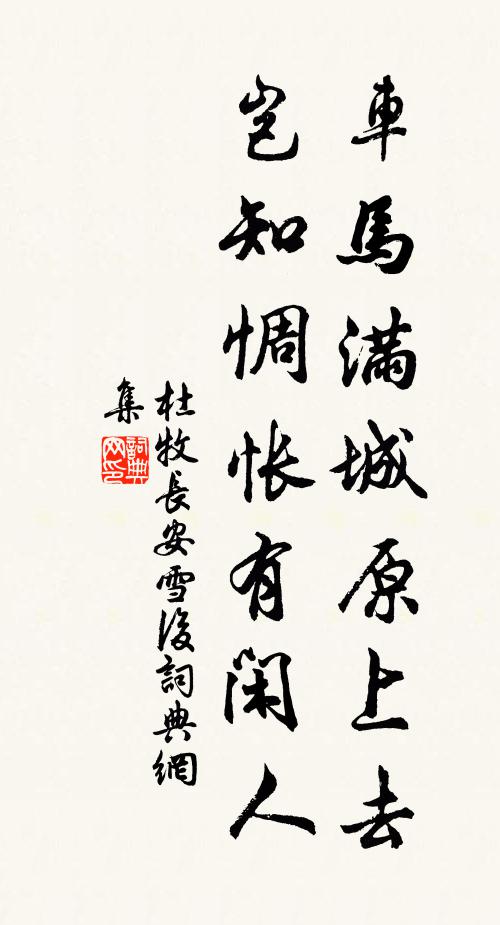 車馬滿城原上去
豈知惆悵有閑人
杜牧長安雪後詞典網
集
詞典
网印